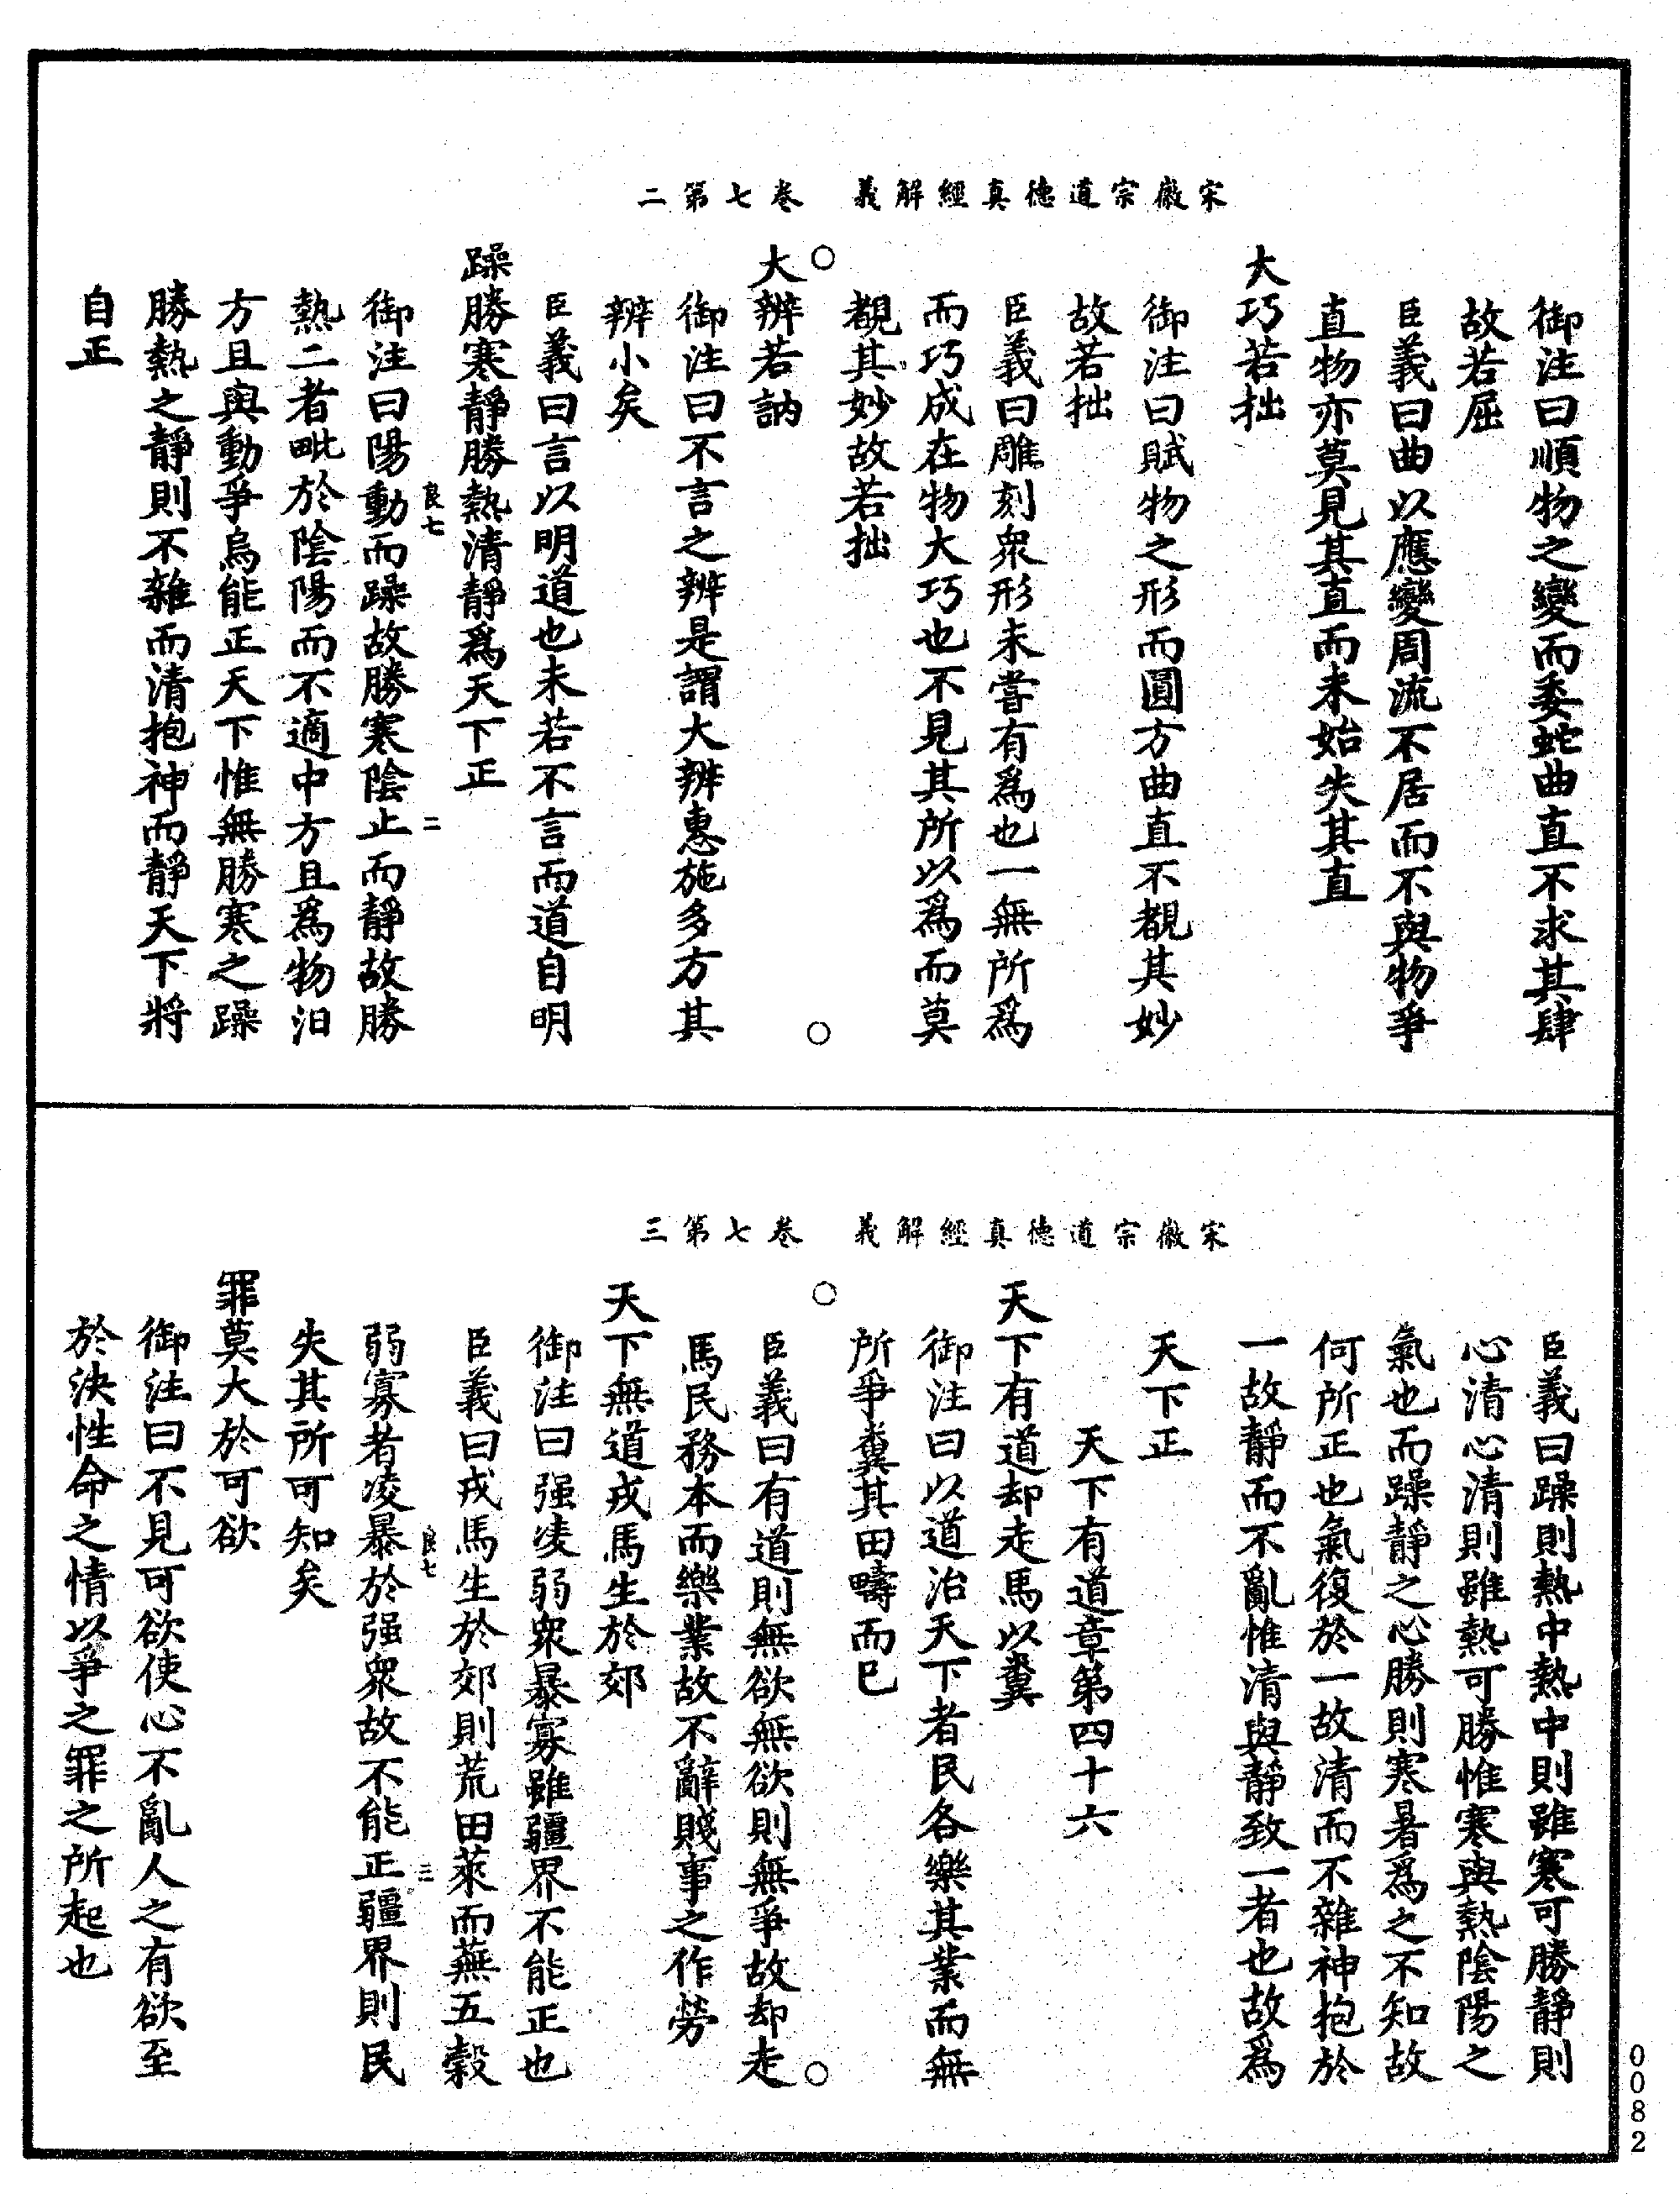 宋徽宗道德真經解義　卷七第二
御注曰順物之變而委蛇曲直不求其肆
故若屈
臣義曰曲以應變周流不居而不與物爭
直物亦莫見其直而未始失其直
大巧若拙
御注曰賦物之形而圓方曲直不覩其妙
故若拙
臣義曰雕刻衆形未嘗有爲也一無所爲
而巧成在物大巧也不見其所以爲而莫
覩其妙故若拙
大辨若訥
御注曰不言之辨是謂大辨惠施多方其
辨小矣
臣義曰言以明道也未若不言而道自明
躁勝寒靜勝熱清靜爲天下正
良七　二
御注曰陽動而躁故勝寒陰止而靜故勝
熱二者毗於陰陽而不適中方且爲物汩
方且與動爭烏能正天下惟無勝寒之躁
勝熱之靜則不雜而清抱神而靜天下將
自正
宋徽宗道德真經解義　卷七第三
臣義曰躁則熱中熱中則雖寒可勝靜則
心清心清則雖熱可勝惟寒與熱陰陽之
氣也而躁靜之心勝則寒暑爲之不知故
何所正也氣復於一故清而不雜神抱於
一故靜而不亂惟清與靜致一者也故爲
天下正
天下有道章第四十六
天下有道却走馬以糞
御注曰以道治天下者民各樂其業而無
所爭糞其田疇而已
臣義曰有道則無欲無欲則無爭故却走
馬民務本而樂業故不辭賤事之作勞
天下無道戎馬生於郊
御注曰强凌弱衆暴寡雖疆界不能正也
臣義曰戎馬生於郊則荒田萊而蕪五穀
良七　三
弱寡者凌暴於强衆故不能正疆界則民
失其所可知矣
罪莫大於可欲
御注曰不見可欲使心不亂人之有欲至
於決性命之情以爭之罪之所起也
0082